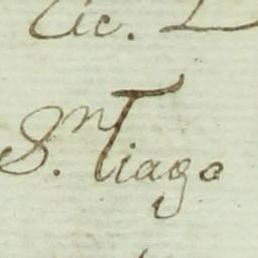 Lic. L
S.n Tiago